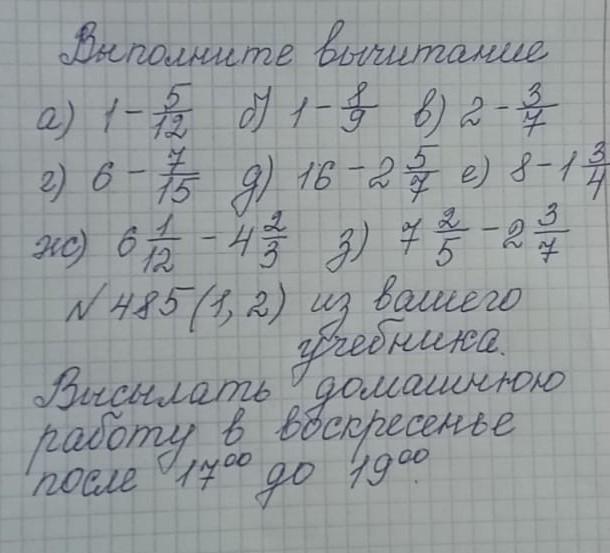 Выполните вычитание
а) 1 - 5/12 б) 1 - 8/9 в) 2 - 3/7
г) 6 - 7/15 д) 16 - 2 5/7 е) 8 - 1 3/4
ж) 6 1/12 - 4 2/3 з) 7 2/5 - 2 3/7
N 485 (1, 2) из вашего
учебника.
Высылать домашнюю
работу в воскресенье
после 17⁰⁰ до 19⁰⁰.